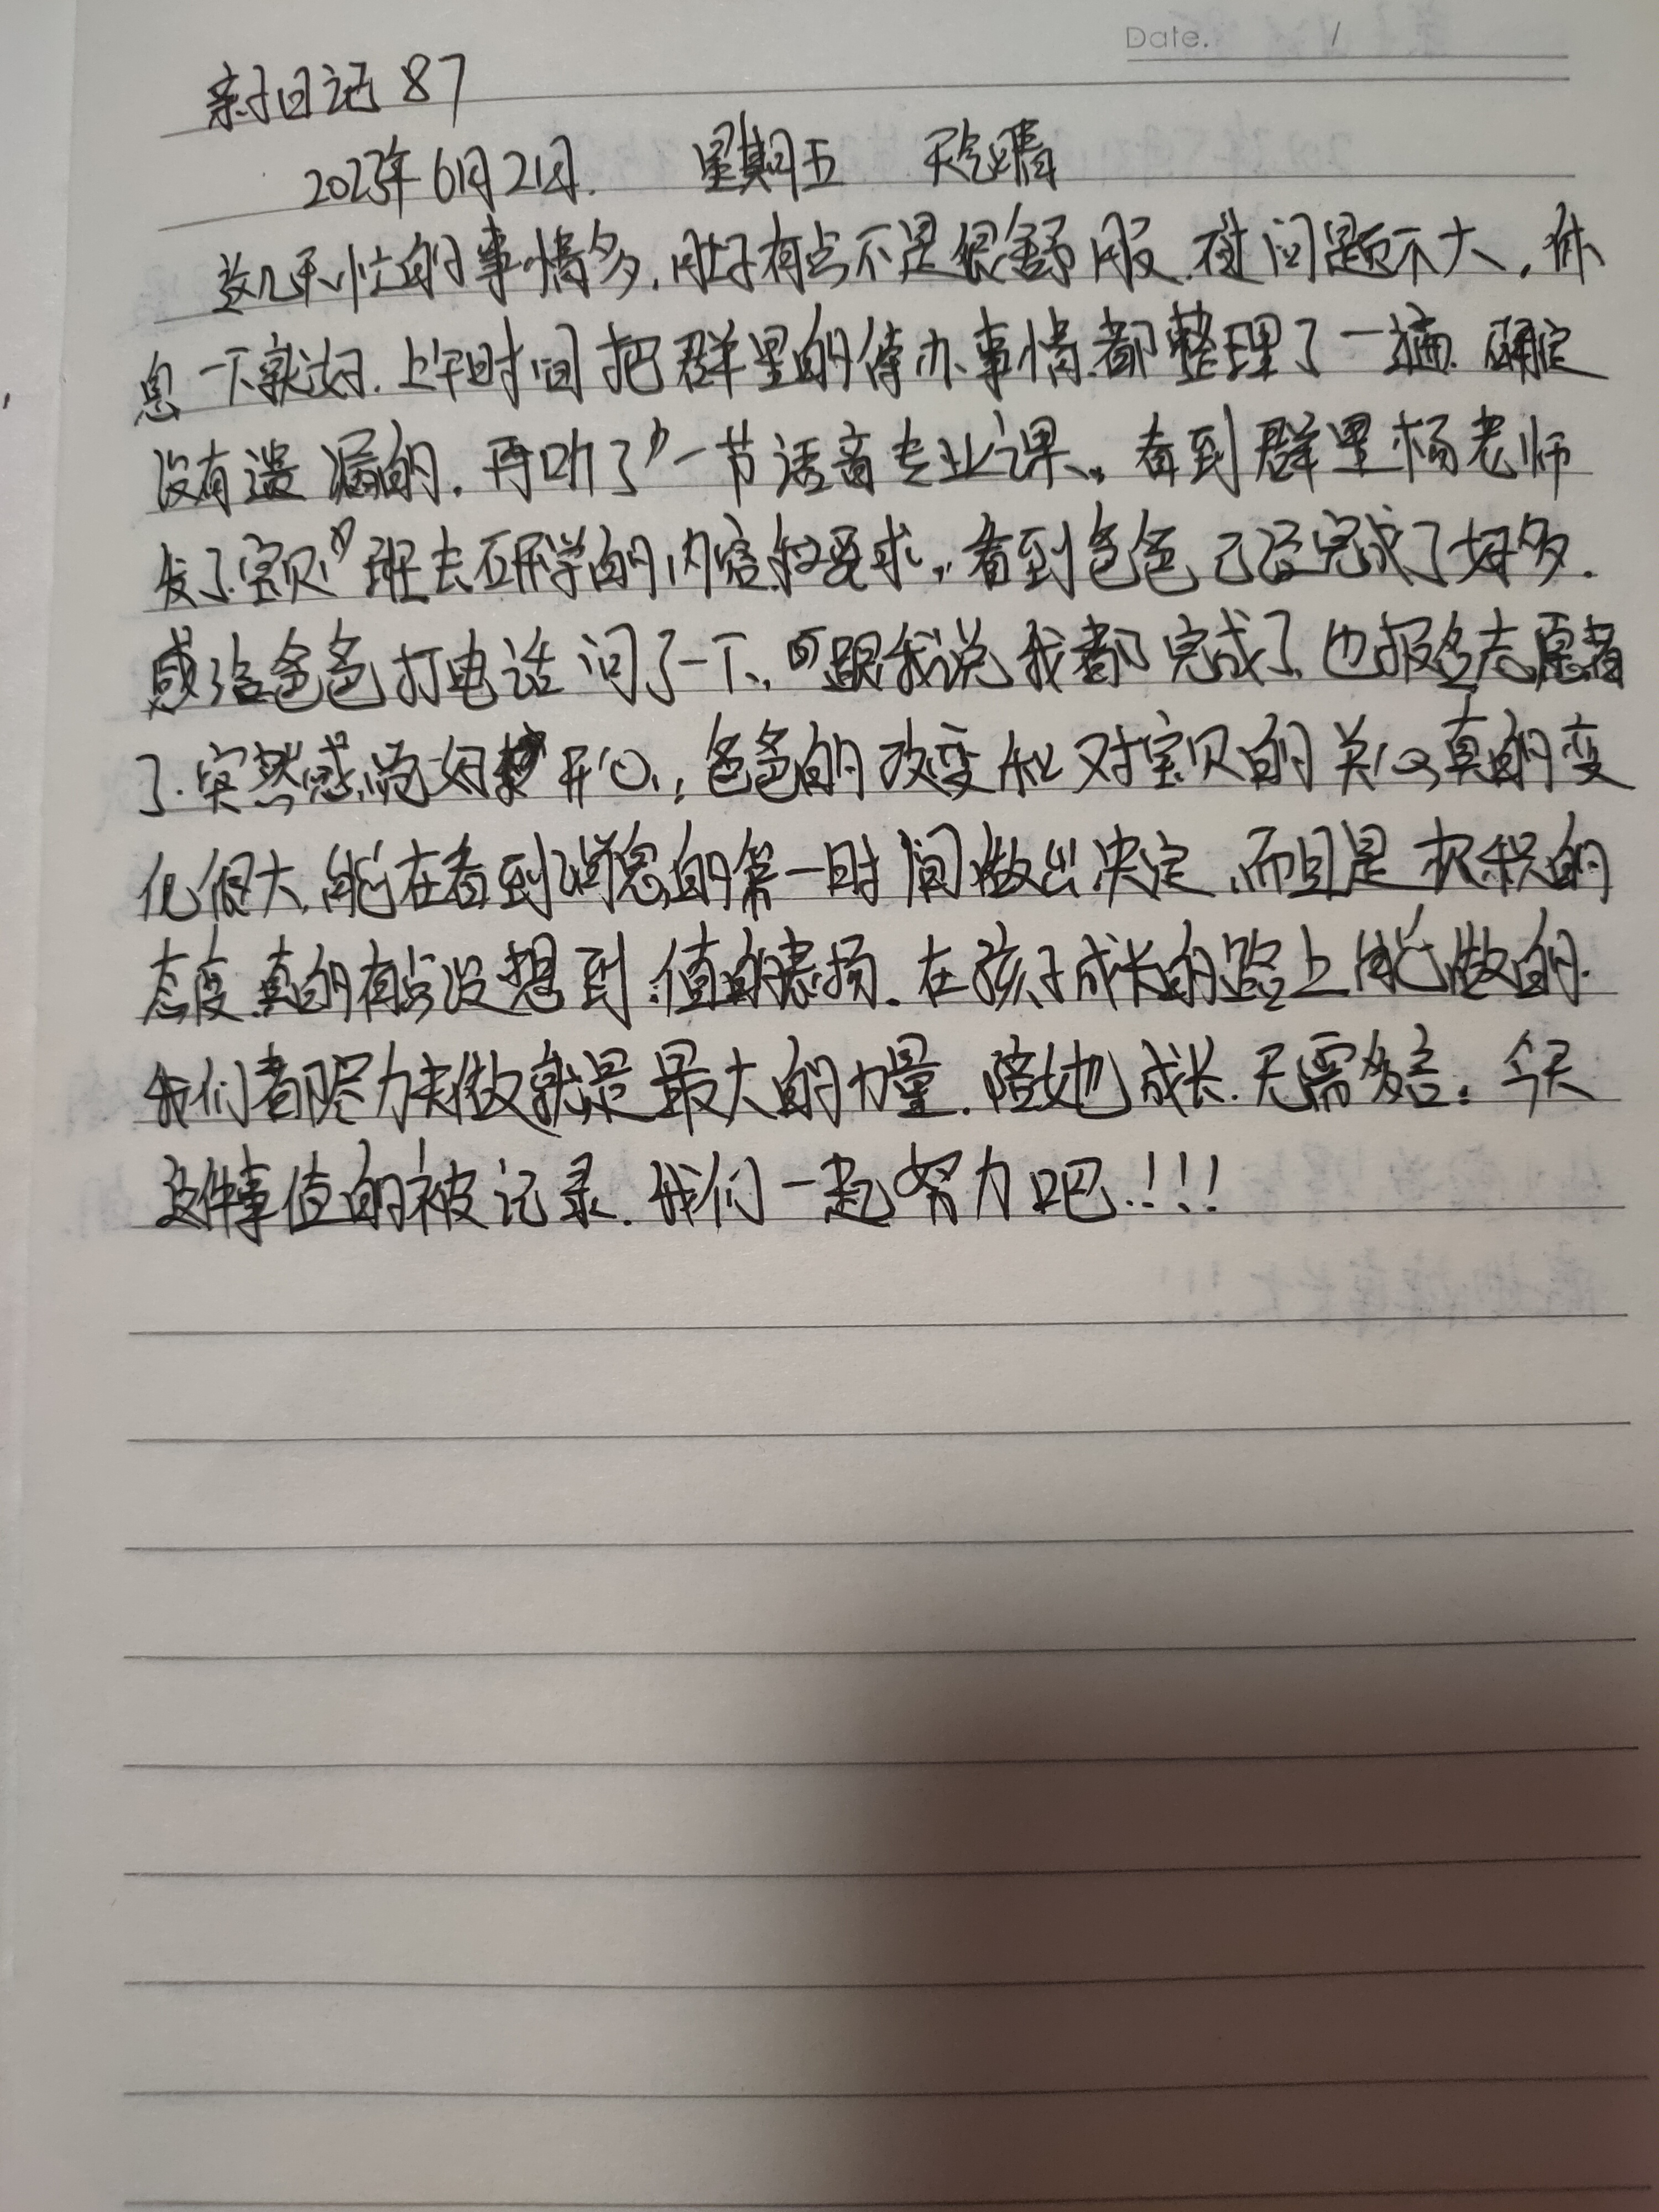 Date. /
亲子日记 87
2023年6月21日. 星期五 天气晴
这几天忙的事情多.肚子有点不是很舒服.但问题不大,休
息一下就好.上午时间把群里的待办事情都整理了一遍.确定
没有遗漏的.再听了一节语音专业课.看到群里杨老师
发了宝贝班去研学的内容和要求.看到爸爸已经完成了好多.
就给爸爸打电话问了一下,跟我说我都完成了,也报名志愿者
了.突然感觉好开心,爸爸的改变和对宝贝的关心真的变
化很大,能在看到消息的第一时间做出决定,而且是积极的
态度.真的有点没想到.值的表扬.在孩子成长的路上能做的.
我们都尽力去做就是最大的力量.陪她成长.无需多言.今天
这件事值的被记录.我们一起努力吧.!!!